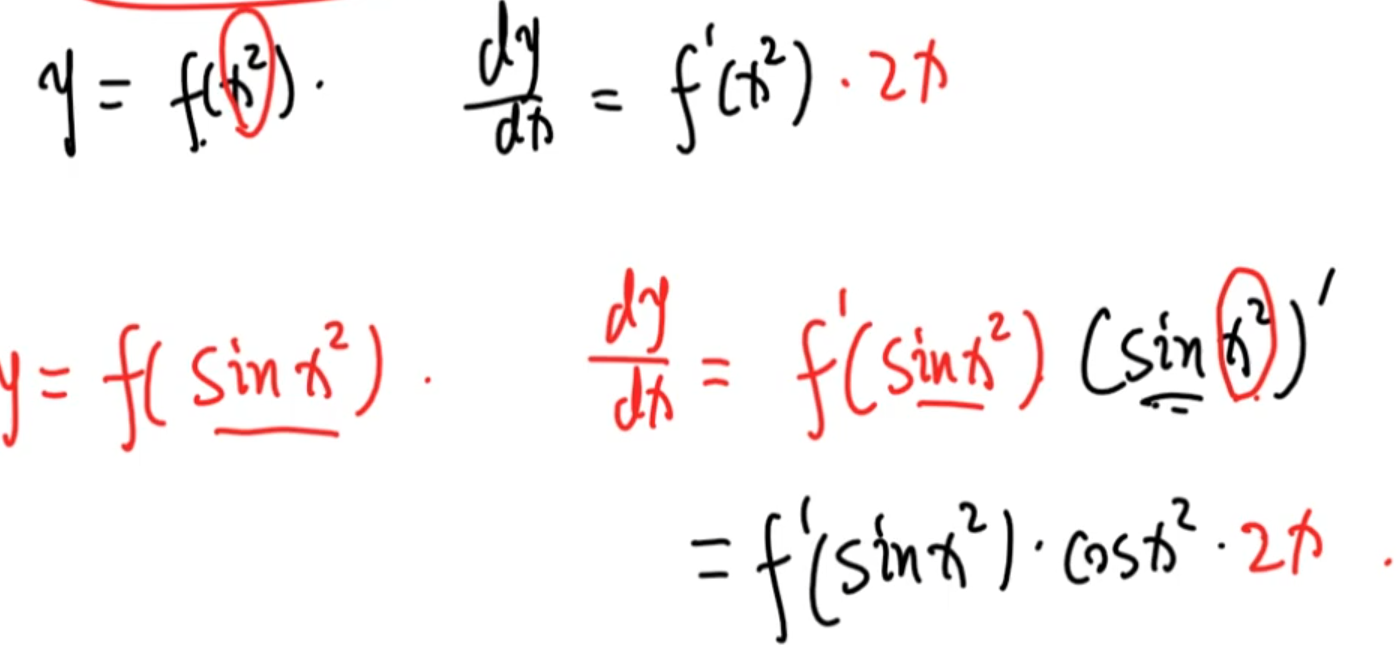 y = f(x²). dy/dx = f'(x²) · 2x
y = f(sin x²). dy/dx = f'(sin x²) (sin x²)'
= f'(sin x²) · cos x² · 2x.